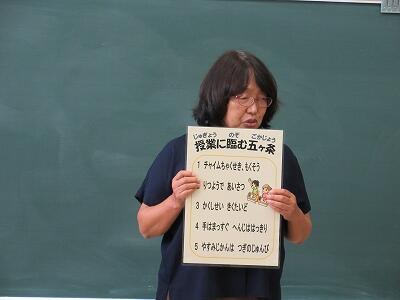 じゅぎょう のぞ ごかじょう
授業に臨む五ヶ条
1 チャイムちゃくせき、もくそう
りつようで あいさつ
3 かくしせい きくたいど
4 手はまっすぐ へんじははっきり
5 やすみじかんは つぎのじゅんび